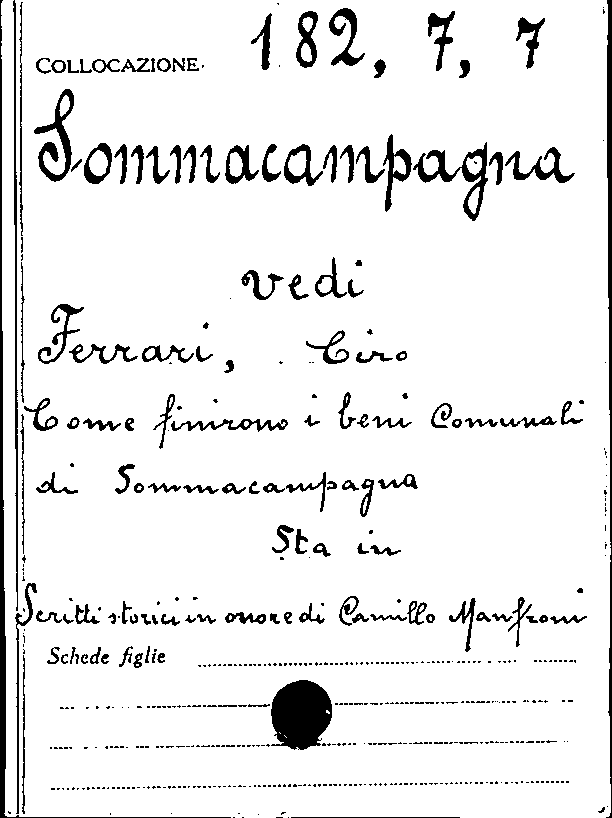 COLLOCAZIONE. 182, 7, 7
Sommacampagna
vedi
Ferrari, Ciro
Come finirono i beni Comunali
di Sommacampagna
Sta in
Scritti storici in onore di Camillo Manfroni
Schede figlie